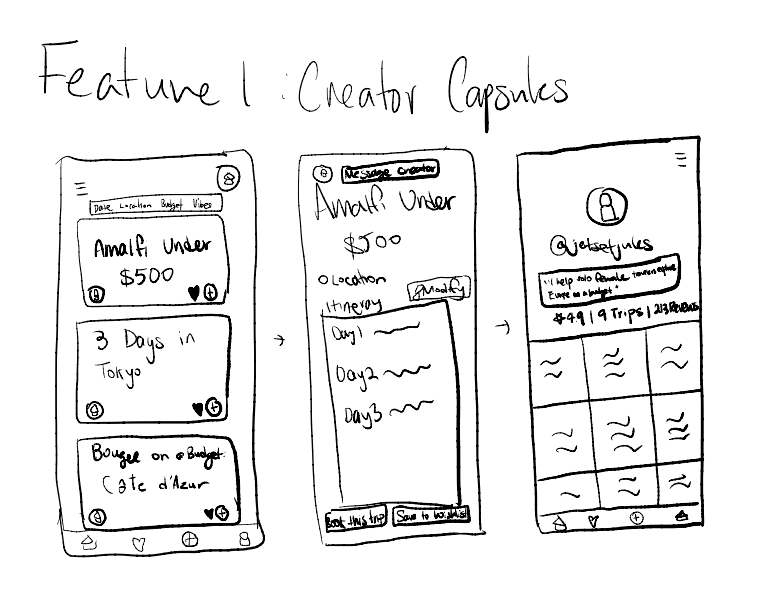 Feature 1 : Creator Capsules
Date Location Budget Vibes
Amalfi Under
$500
3 Days in
Tokyo
Bougee on a Budget:
Cote d'Azur
Message Creator
Amalfi Under
$500
Location
Itinerary
Modify
Day 1
Day 2
Day 3
Book this trip
Save to Wishlist
@jetsetjules
"I help solo female travelers explore
Europe on a budget"
4.9 | 9 Trips | 213 Reviews